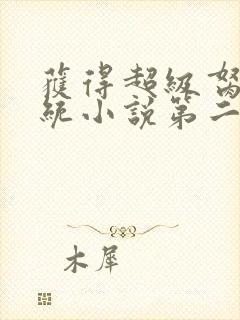 獲得超級
統小說第二
木犀